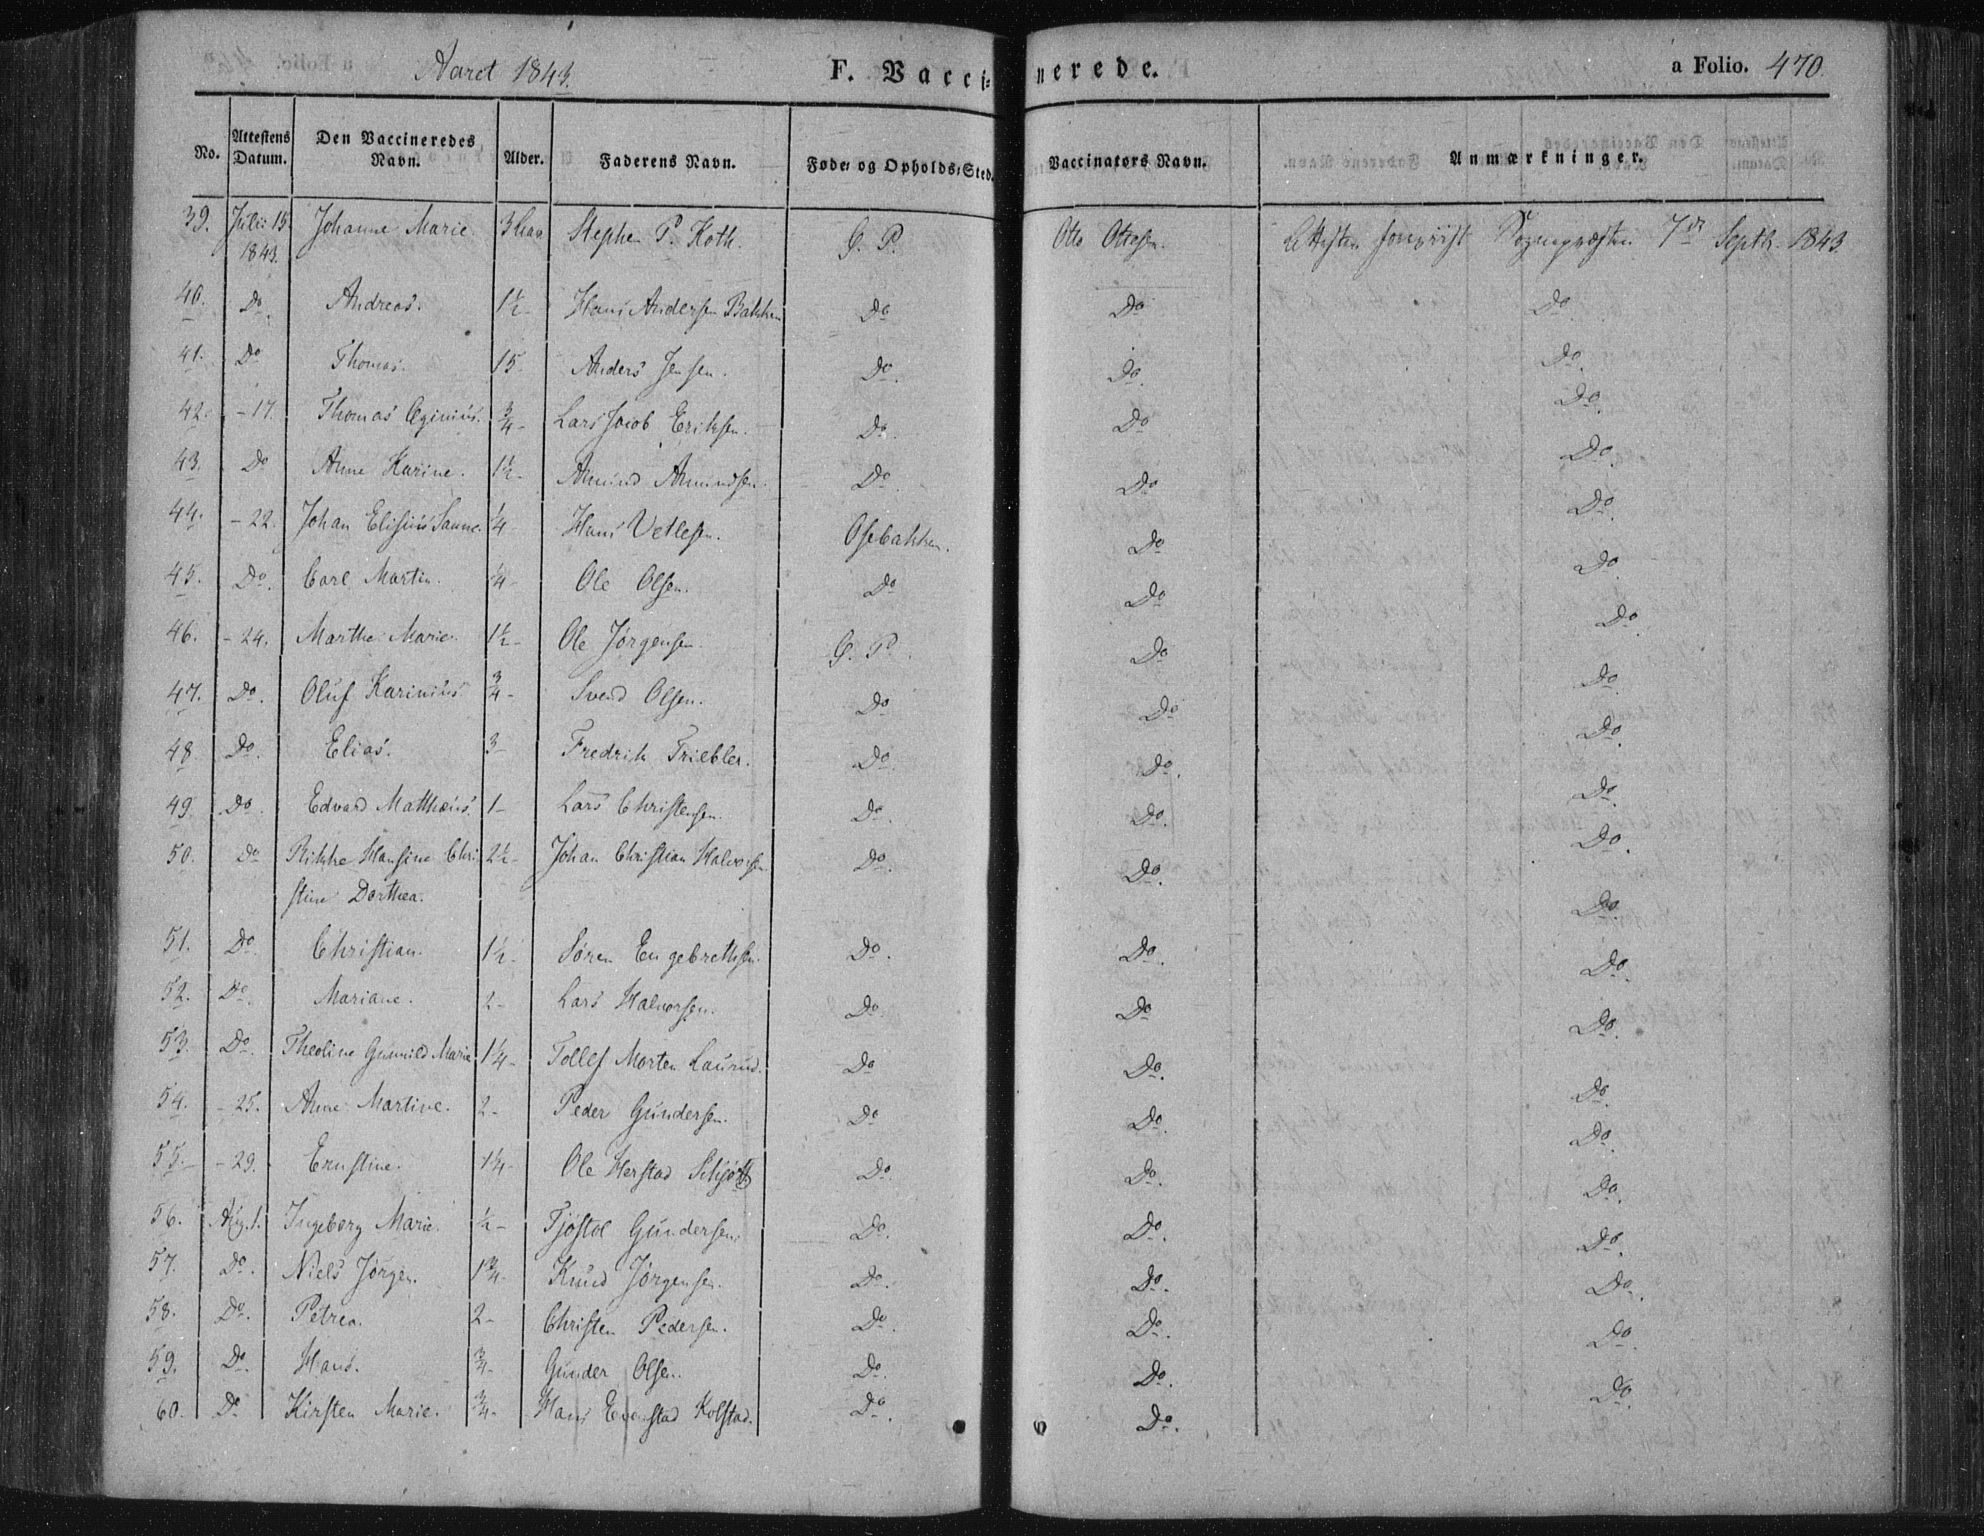 Aaret 1843. F. Vacci= nerede. a Folio. 470.
No. Attestens Datum. Den Vaccineredes Navn. Alder. Faderens Navn. Føde= og Opholds=Sted. Vaccinators Navn. Anmærkninger.
39. Juli 15 1843. Johanne Marie. 3 Stephen P. Koth. G. P. Otto Ottesen. Attesten Sognepræsten 7de Septb. 1843
40. Do. Andreas. 1½- Hans Andersen Bakken Do Do Do.
41. Do Thomas. 15. Anders Jensen. Do. Do. Do.
42. -17. Thomas Eginius. ¾- Lars Jacob Eriksen. Do. Do Do.
43. Do Anne Karine. 1½- Amund Amundsen. Do. Do Do.
44. -22. Johan Elisius Sanne. ¼ Hans Vetlesen. Osebakken. Do Do.
45. Do. Carl Martin. ¼- Ole Olsen. Do Do Do.
46. -24. Marthe Marie. 1½- Ole Jørgensen. G. P. Do Do.
47. Do. Oluf Karinius ¾- Svend Olsen. Do Do Do.
48 Do. Elias. 3- Fredrik Triebler. Do. Do. Do.
49. Do. Edvard Matthæus. 1- Lars Christensen. Do. Do. Do.
50. Do Rikke Hansine Chri 2½- Johan Christian Halvorsen Do. Do. Do.
stine Dorthea. Do.
51. Do Christian. 1½- Søren Engebrethsen. Do. Do. Do.
52. Do. Mariane. 2- Lars Halvorsen. Do. Do Do.
53. Do. Theoline Gunnild Marie 1¼- Tollef Morten Laurud. Do Do. Do.
54. -25. Anne Martine. 2- Peder Gundersen. Do Do. Do.
55. -29. Ernstine. 1¼- Ole Herstad Schjøtt Do. Do. Do.
56. Aug. 1. Ingeborg Marie. ½- Tjøstol Gundersen. Do. Do. Do.
57. Do. Niels Jørgen. 1¾- Knud Jørgensen. Do. Do. Do.
58. Do. Petrea. 2- Christen Pedersen. Do. Do. Do
59. Do. Hans. ¾- Gunder Olsen. Do. Do. Do.
60. Do Kirsten Marie. ¾- Hans Evenstad Kolstad. Do. Do.